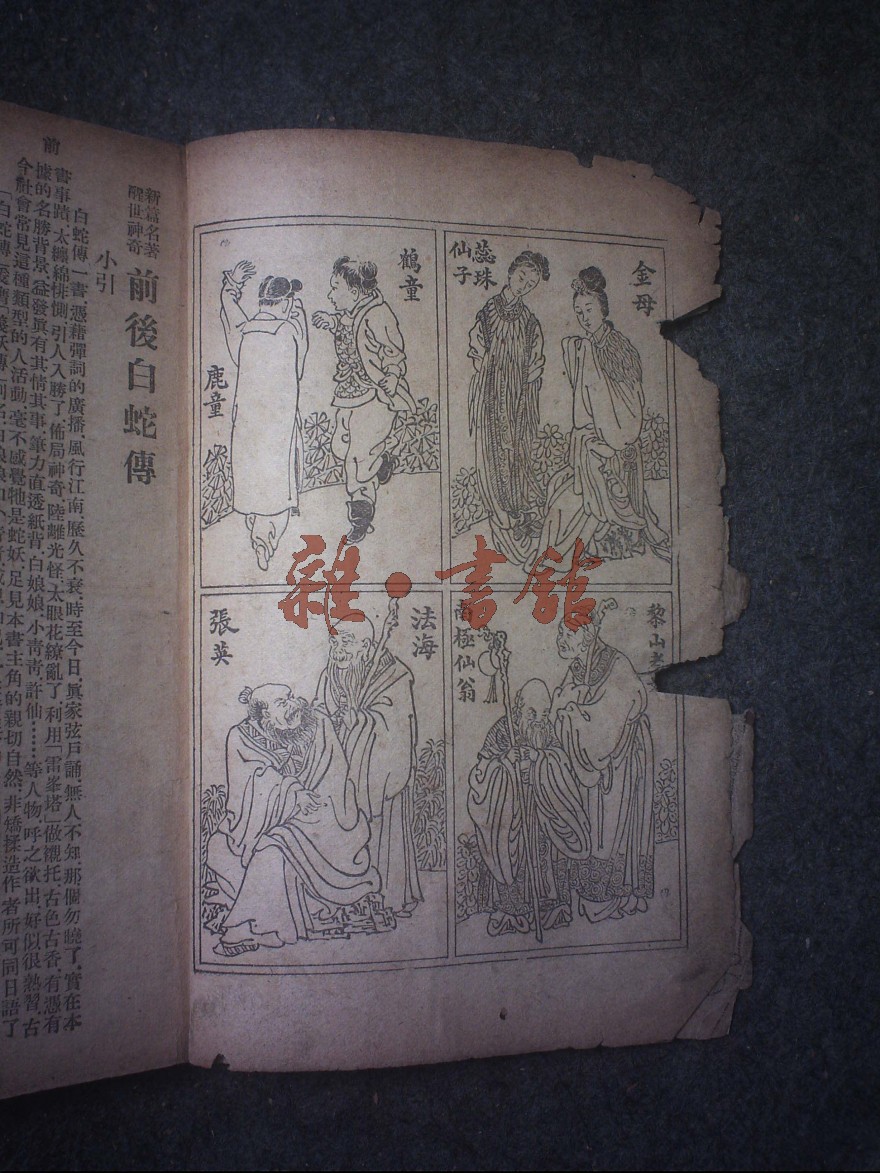 金母
蕊珠
仙子
鶴童
鹿童
黎山老
南極仙翁
法海
張英
雜·書館
前
新篇名著
醒世神奇
前後白蛇傳
小引
白蛇傳一書，憑藉彈詞的廣播，風行江南，歷久不衰，時至今日，眞家弦戶誦，無人不知，那個勿曉了，實在本
書事蹟，太纏綿悱惻，引人入勝了，佈局神奇，陸離光怪，太眼花繚亂了，利用「雷峯塔」做襯托，古色古香，有憑有
據的名勝背景，益發眞有其情其事，筆力直透紙背，白娘娘，小青青，許仙……等人物，呼之欲出，好似很熟習，古
今社會常見這種類型的人活動，毫不感覺牠是蛇妖，足見本書主角的親切自然，非矯揉造作者所可同日語了